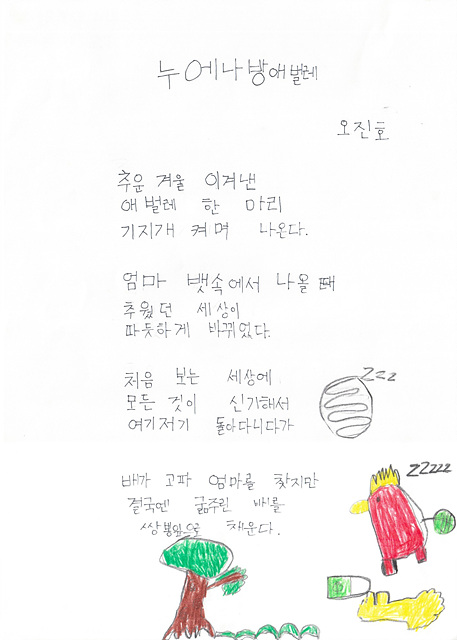 누에나방애벌레
오진호
추운 겨울 이겨낸
애벌레 한 마리
기지개 켜며 나온다.
엄마 뱃속에서 나올 때
추웠던 세상이
따듯하게 바뀌었다.
처음 보는 세상에
모든 것이 신기해서
여기저기 돌아다니다가
배가 고파 엄마를 찾지만
결국엔 굶주린 배를
뽕잎으로 채운다.
zzz
ZZzzz